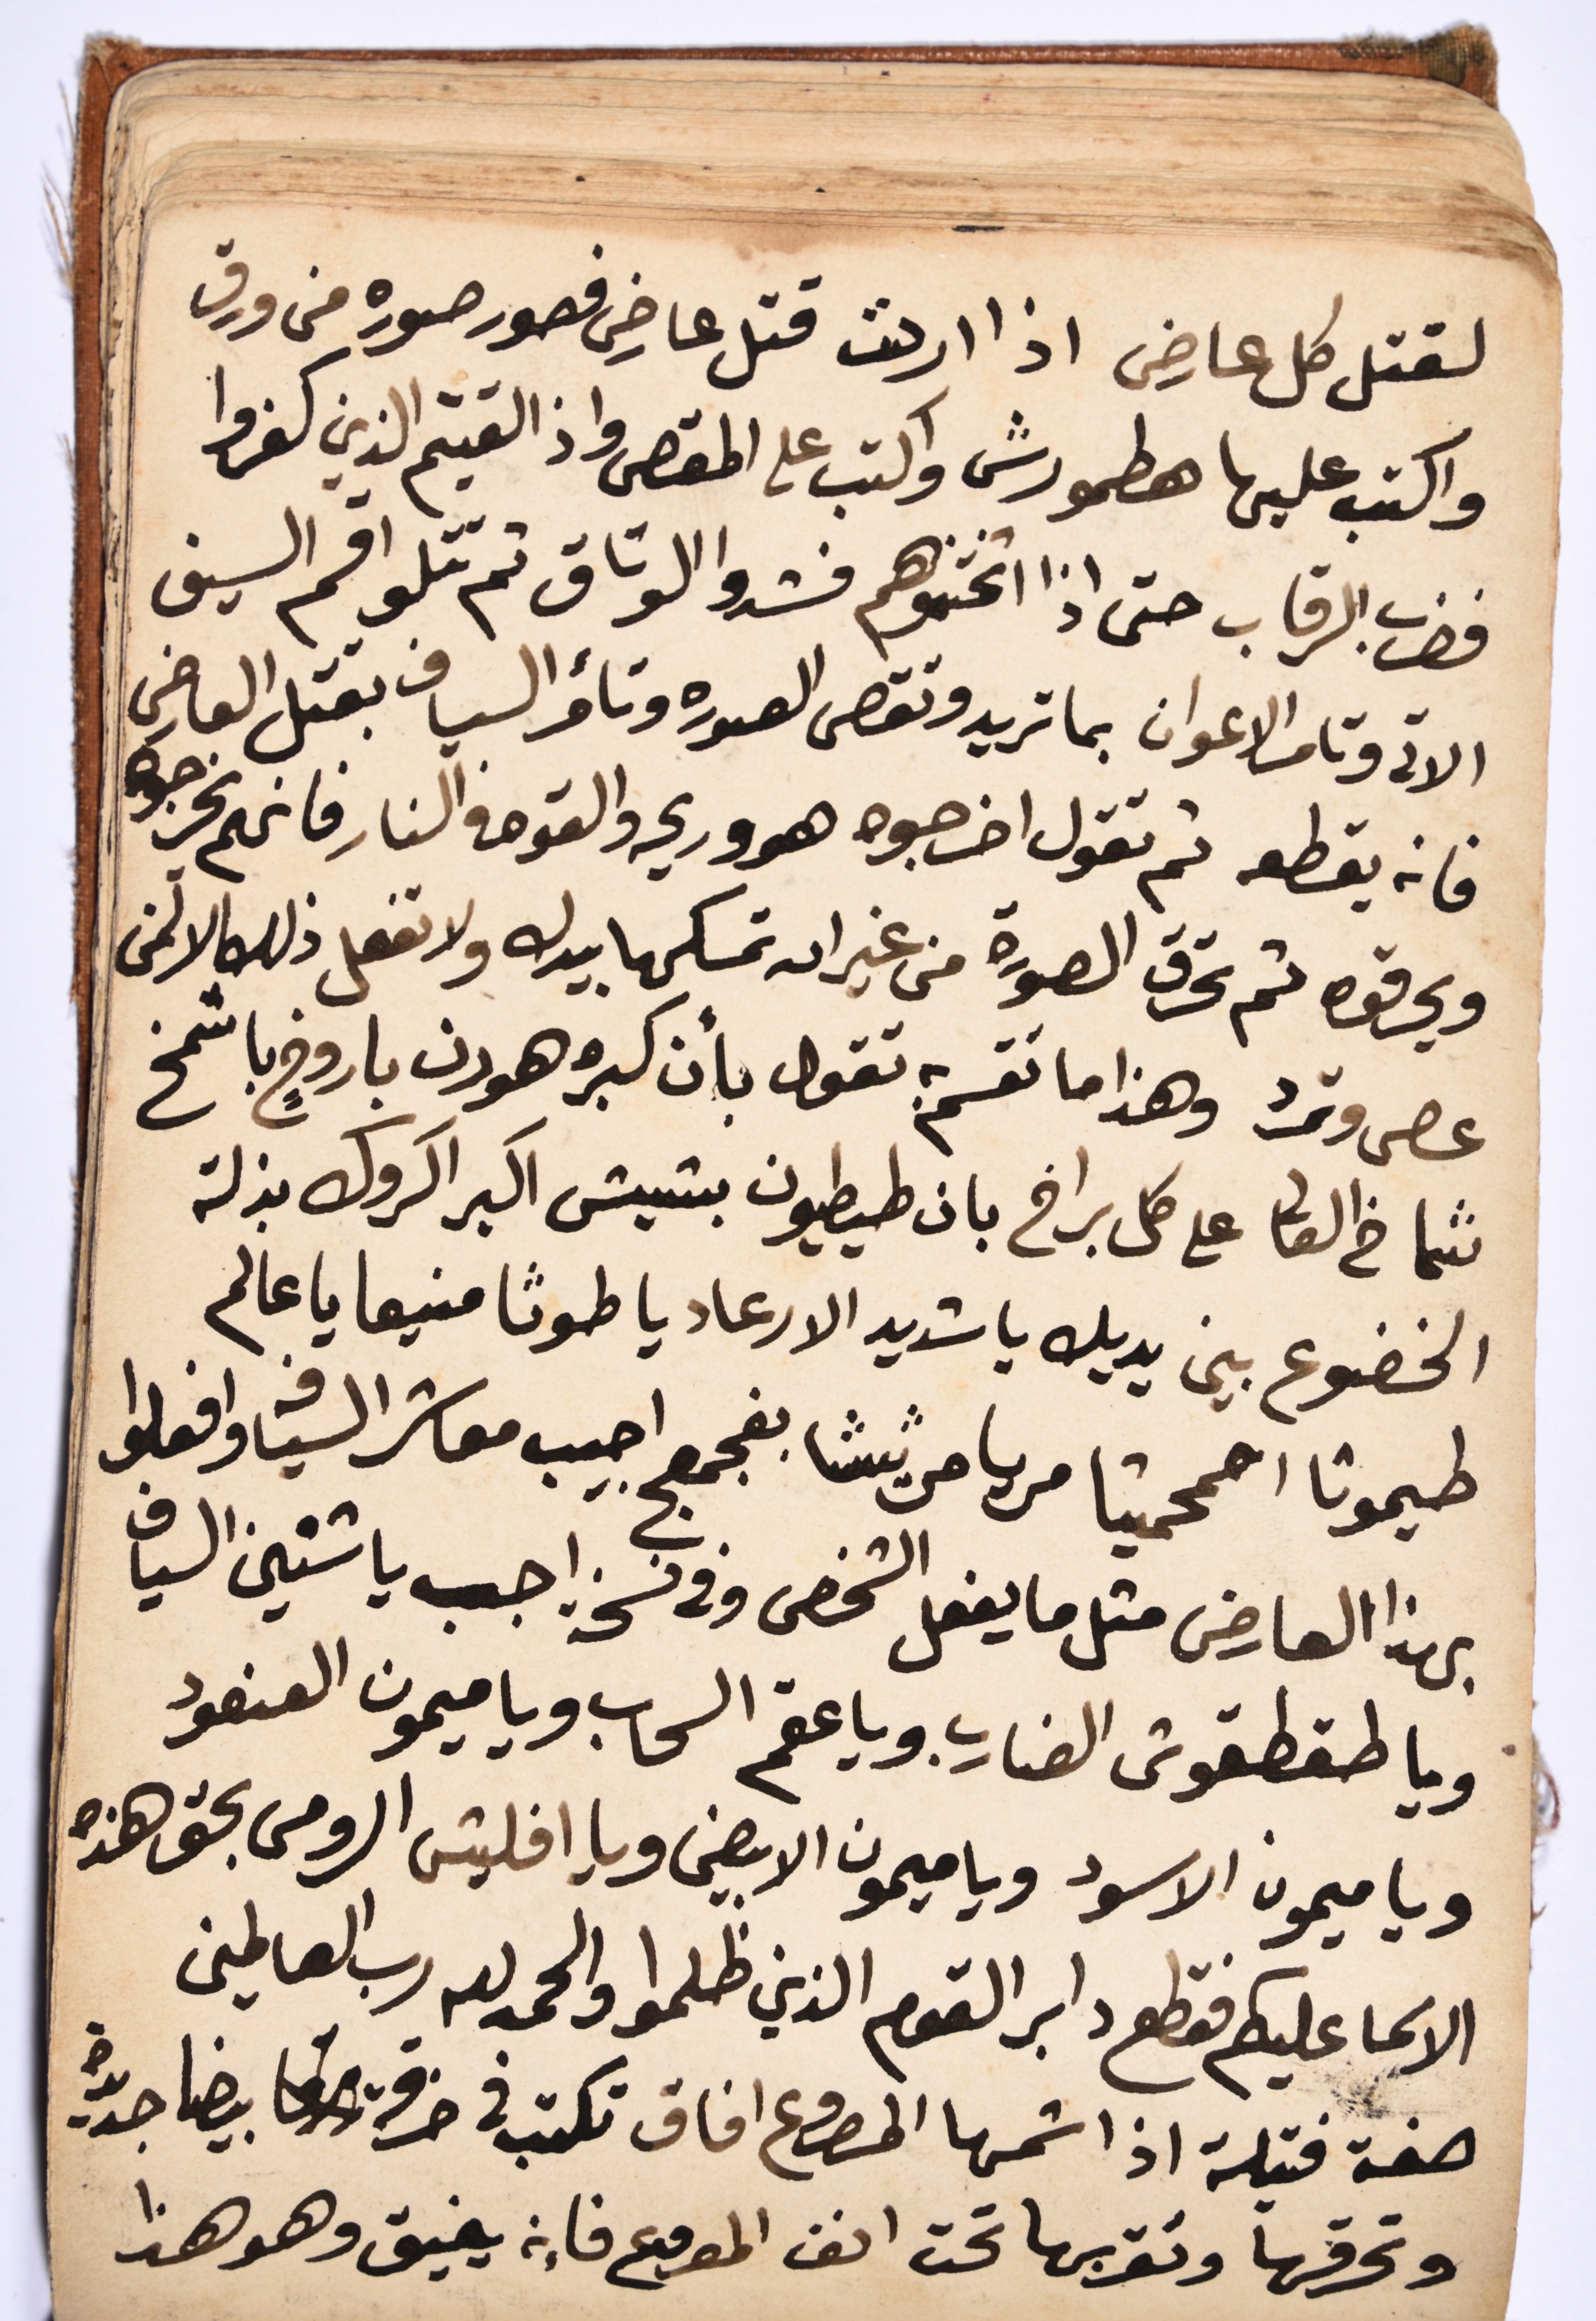 لقتل كل عارض اذا اردت قتل عارض فصور صوره من ورق
واكتب عليها هطمورش واكتب على المقص واذ القيتم الذين كفروا
فضرب الرقاب حتى اذا اثخنتموهم فشدوا الوثاق ثم تتلوا قسم السيف
الاتى وتامر الاعوان بما تريد وتقص الصوره وتأمر السياف بقتل العارض
فانه يقطعه ثم تقول اخرجوه هو وريحه والقوه فى النار فانهم يخرجوه
ويحرقوه ثم تحرق الصورة من غير ان تمسكها بيدك ولا تفعل ذلك الا لمن
عصى وتمرد وهذا ما تقسم به تقول بأن كبره هورن باروخ باشمخ
شماخ العالى على كل براخ بان طيطيون بشيش اكبر اكروك بذلة
الخضوع بين يديك يا شديد الارعاد يا طوثا منيعا يا عالم
طيموثا احمحميثا مريا مريثشا بفجمعج اجيب معاشر السيافه وافعلوا
بهذا العارض مثل ما يفعل الشخص وفى نسخة اجب يا شنين السياف
ويا طقطقوش الضارب ويا عقم السحاب ويا ميمون العنقود
ويا ميمون الاسود ويا ميمون الابيض ويا افليش الرومى بحق هذه
الاسما عليكم فقطع دابر القوم الذين ظلموا والحمد لله رب العالمين
صفة فتيلة اذا شمها المصروع افاق تكتب فى خرقة بيضا جديده
وتحرقها وتقربها تحت انف المصروع فانه يفيق وهو هذا